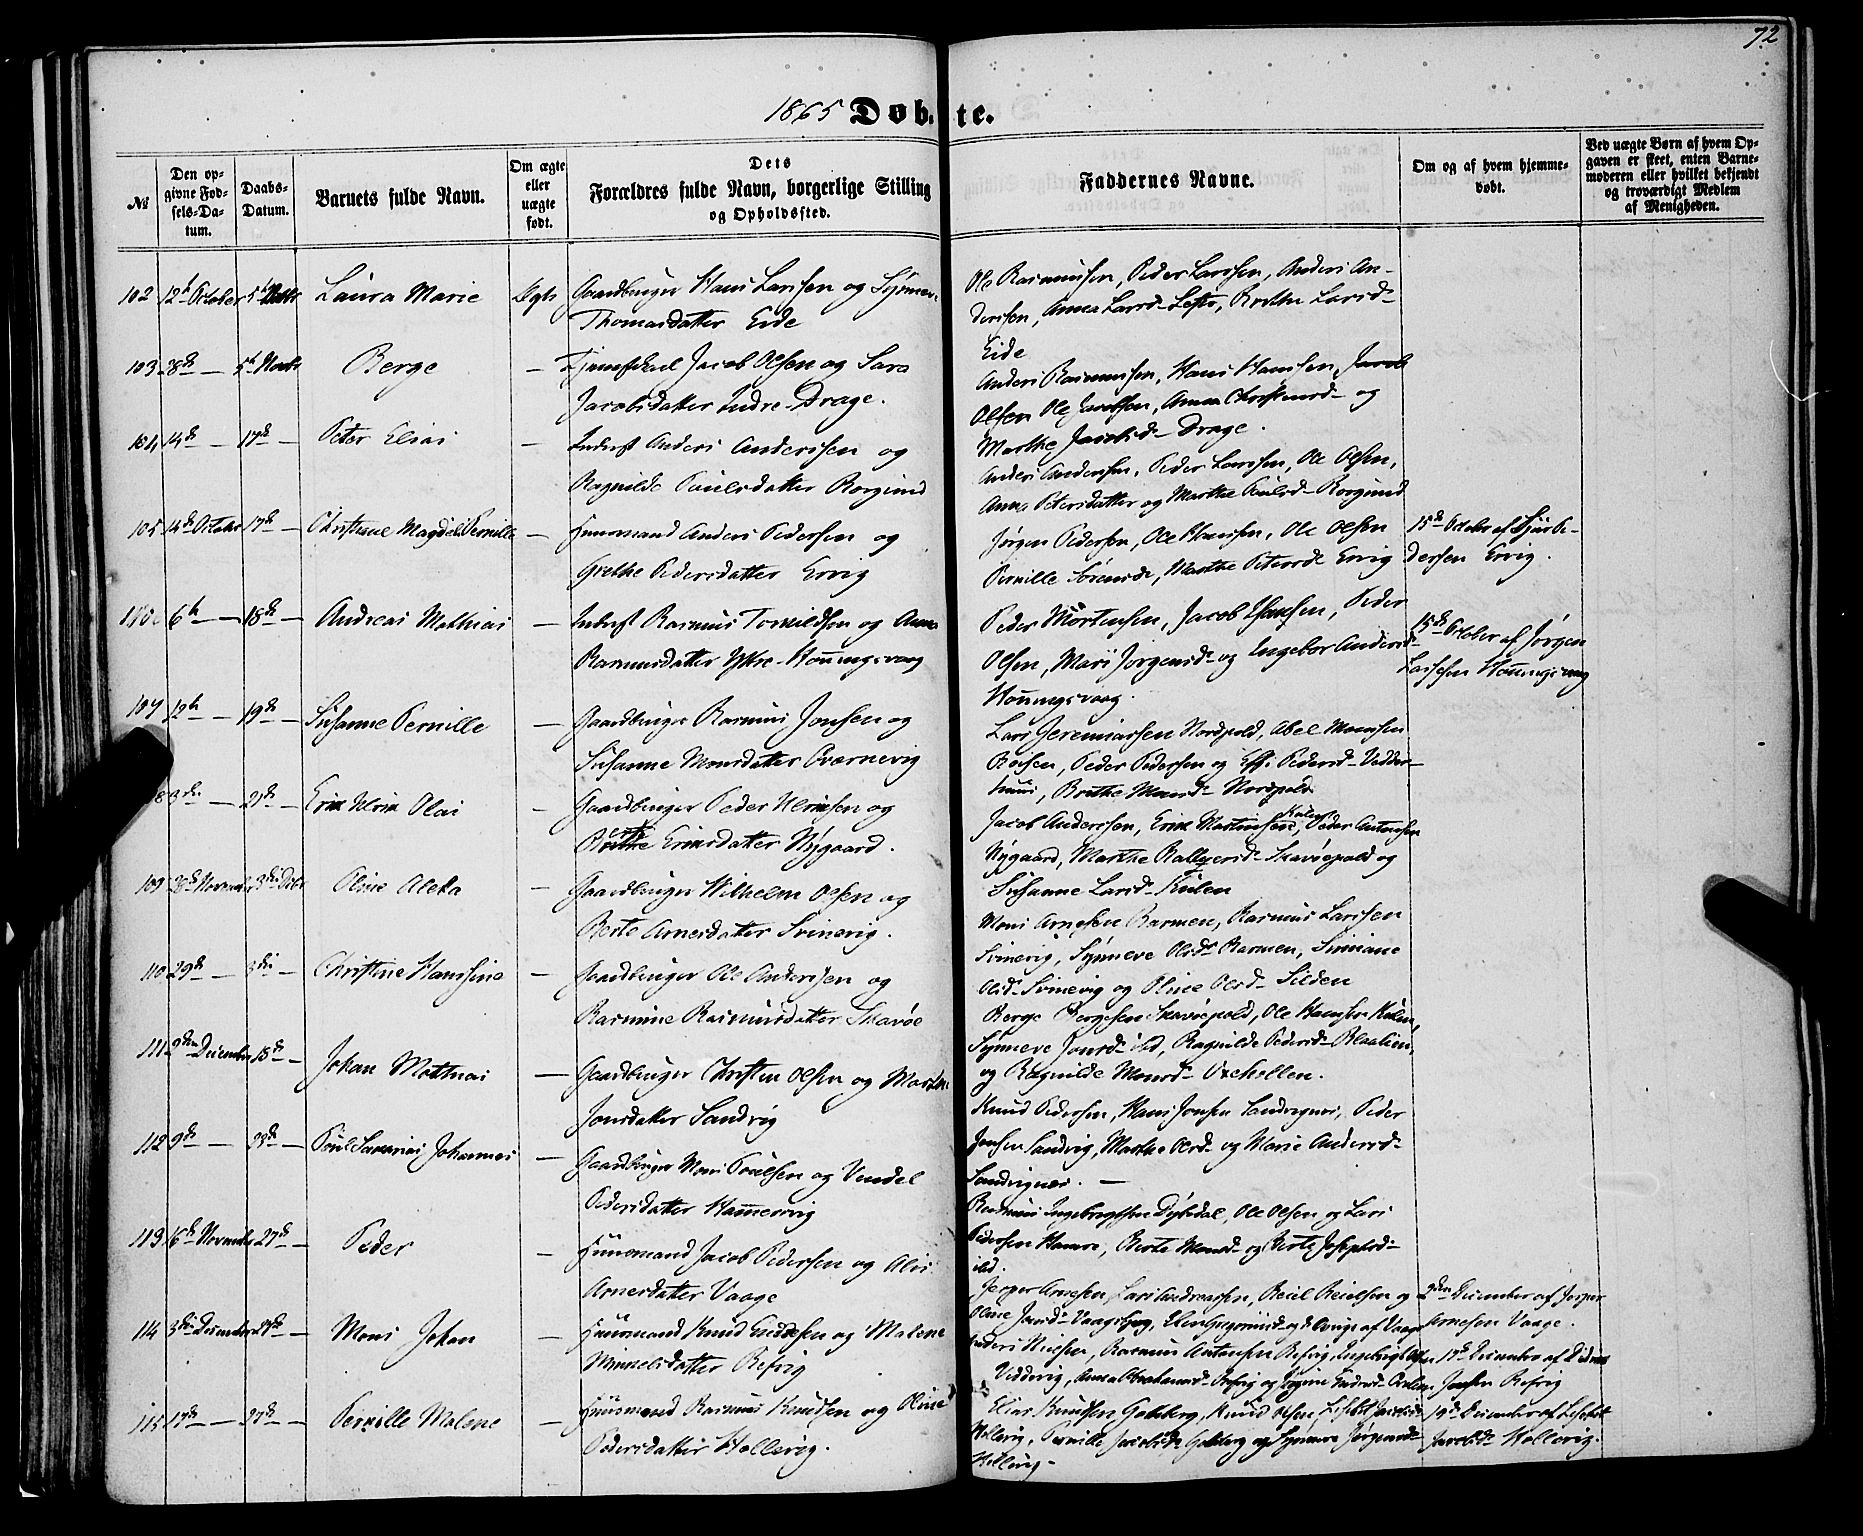 72
1865 Døbte.
№
Den opgivne Fødsels-Datum.
Daabs-Datum.
Barnets fulde Navn.
Om ægte eller uægte født.
Dets Forældres fulde Navn, borgerlige Stilling og Opholdssted.
Faddernes Navne.
Om og af hvem hjemmedøbt.
Ved uægte Børn af hvem Opgaven er skeet, enten Barnemoderen eller hvilket bekjendt og troværdigt Medlem af Menigheden.
102 12te October 5te Novbr Laura Marie Ægte Gaardbruger Hans Larsen og Synneve
Thomasdatter Eide
Ole Rasmussen, Peder Larssen, Anders An-
derssen, Anna Larsd- Brithe Larsd-
Eide
103 28de — 5te Novbr Berge — Jacob Olsen og Sara
Jacobsdatter Indre-Drage.
Anders Rasmussen, Hans Hanssen, Jacob
Olsen Ole Jacobsen, Anna Christensd- og
Marthe Jacobsd- Drage.
104 14de — 17de — Peter Elias — Inderst Anders Anderssen og
Ragnilde Poulsdatter Borgund
Anders Anderssen, Peder Larssen, Ole Olsen,
Anna Petersdatter og Marthe Poulsd- Borgund
105 14de October 17de — Christiane Magdel: Pernille — Huusmand Anders Pedersen og
Grethe Pedersdatter Ervig
Jørgen Pedersen, Ole Hanssen, Ole Olsen
Pernille Sørensd-, Marthe Petersd- Ervig
15de October af Siur Pe-
dersen Ervig.
6te — 18de — Andreas Mathias — Inderst Rasmus og Anna
Rasmusdatter Ytre-Honningsvaag
Peder Mortensen, Jacob Hanssen, Peder
Olsen, Mari Jørgensd- og Ingebor Andersd-
Honningsvaag.
15de October af Jørgen
Larssen Honningsvaag
107 12te — 19de — Susanne Pernille — Gaardbruger Rasmus Jonsen og
Susanne Monsdatter Qværnevig
Lars Jeremiassen Nordpold, Abel Monssen
Peder Pedersen og Pedersd- Vedder-
huus, Brithe Monsd- Nordpold
3die — 21de — Erik Ulrik Olai — Gaardbruger Peder Ulriksen og
Brithe Eriksdatter Nygaard.
Jacob Anderssen, Erik Martinssen, Peder Antonsen
Nygaard, Marthe Skavøepold og
Susanne Larsd- Kulen
109 28de November 3die Decbr Oline Aleta — Gaardbruger Wilhelm Olsen og
Berte Arnesdatter Svinevig.
Mons Arnesen Barmen, Rasmus Larssen
Svinevig, Synneve Olsd- Barmen, Simiane
Olsd- Svinevig og Oline Olsd- Silden
110 29de — 3die — Christine Hanssine — Gaardbruger Ole Anderssen og
Rasmine Rasmusdatter Skavøe
Berge Bergesen Skavøepold, Ole Hanssen Kulen,
Synneve Jonsd- ibd, Ragnilde Pedersd-
og Ragnilde Monsd-
111 2den December 15de — Johan Mathias — Gaardbruger Christen Olsen og Marthe
Jonsdatter Sandvig
Knud Pedersen, Hans Jonsen Sandvignes, Peder
Jonsen Sandvig, Marthe Olsd- og Marie Andersd-
Sandvignes. —
112 9de — 23de — Poul Johannes — Gaardbruger Mons Poulsen og Vendel
Pedersdatter Hammersvig
Rasmus Ingebrigtsen Dybedal, Ole Olsen og Lars
Pedersen Hamre, Berte Monsd- og Berte Josephsd-
ibd.
113 16de November 27de — Peder — Huusmand Jacob Pedersen og Alis
Arnesdatter Vaage
Jesper Arnesen, Lars Andreassen, og
Oline Jansd- Vaage
2den December af Jesper
Arnesen Vaage.
114 3die December 27de — Mons Johan — Huusmand Knud og Malene
datter Refvig
Anders Nielsen, Rasmus Antonsen Refvig,
Anna Abrahamsd- Refvig og
17de December af
Jonsen Refvig
115 17de — 27de — Pernille Malene — Huusmand Rasmus Knudsen og Oline
Pedersdatter Hellevig.
Elias Knudsen Knud Olsen,
Hellevig, Pernille Jacobsd- og Synneve Jørgensd-
Hellevig-
17de December af Lisebet
Jacobsd- Hellevig.